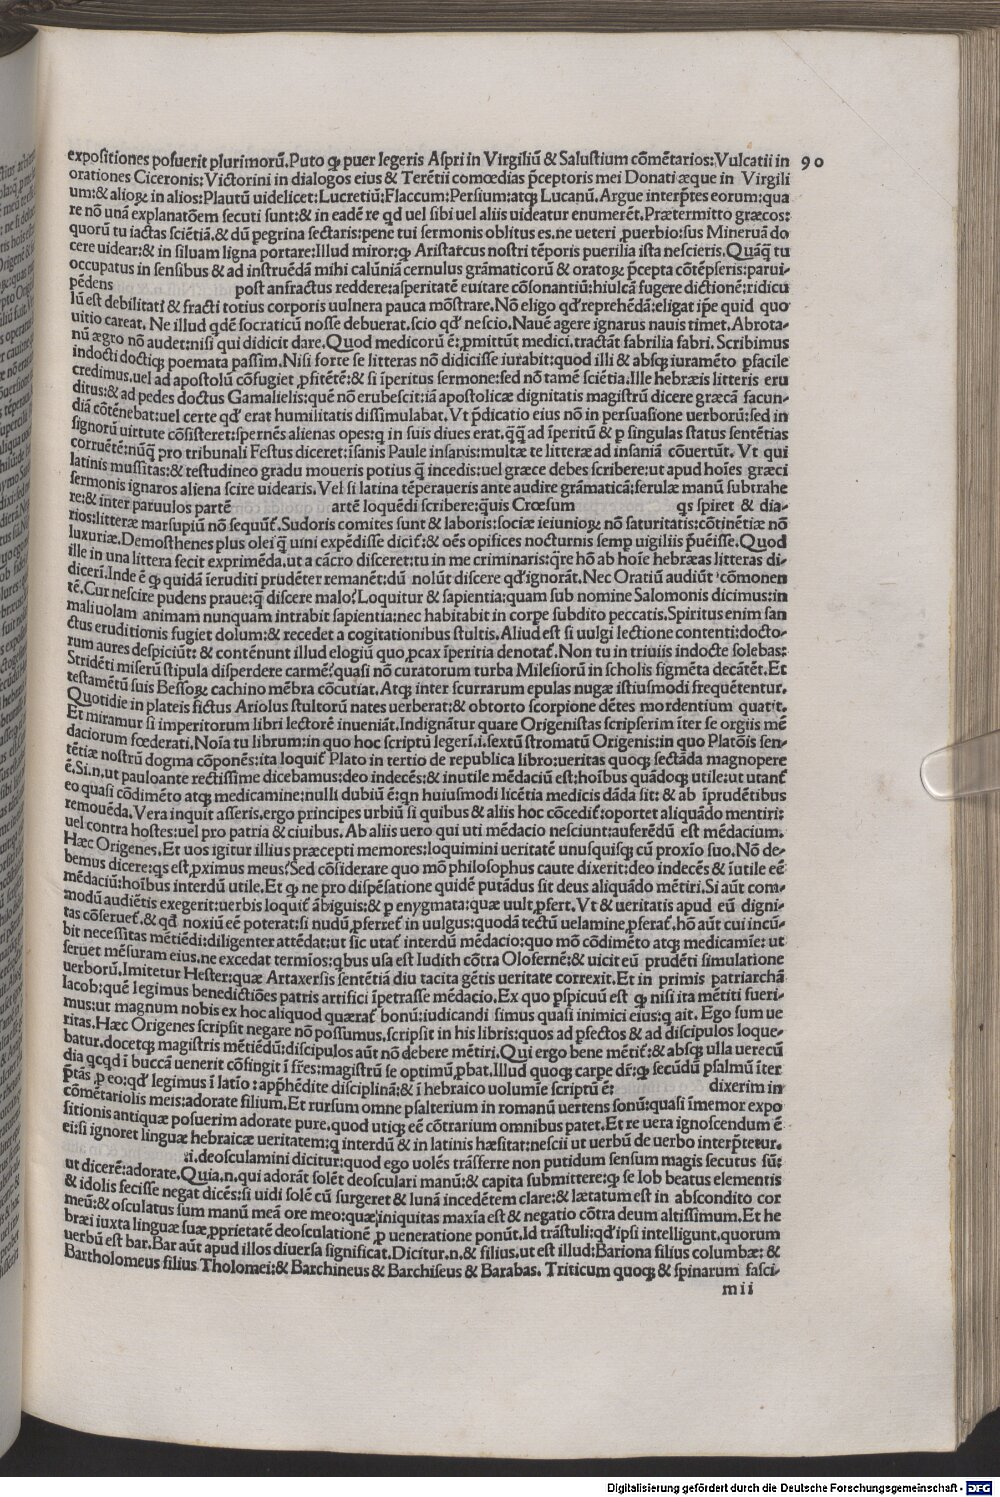 expositiones posuerit plurimorũ.Puto ꝙ puer legeris Aspri in Virgiliũ & Salustium cõmẽtarios:Vulcatii in 90
orationes Ciceronis:Victorini in dialogos eius & Terẽtii comœdias p̃ceptoris mei Donati æque in Virgili
um:& alioꝝ in alios:Plautũ uidelicet:Lucretiũ:Flaccum:Persium:atqꝫ Lucanũ.Argue interp̃tes eorum:qua
re nõ unã explanatõem secuti sunt:& in eadẽ re qd uel sibi uel aliis uideatur enumerẽt.Prætermitto græcos:
quorũ tu iactas sciẽtiã.& dũ pegrina sectaris:pene tui sermonis oblitus es.ne ueteri ꝓuerbio:sus Mineruã do
cere uidear:& in siluam ligna portare:Illud miror:ꝙ Aristarcus nostri tẽporis puerilia ista nescieris.Quãq̃ tu
occupatus in sensibus & ad instruẽdã mihi calũniã cernulus grãmaticorũ & oratoꝝ p̃cepta cõtẽpseris:parui-
pẽdens post anfractus reddere:asperitatẽ euitare cõsonantiũ:hiulcã fugere dictionẽ:ridicu
lũ est debilitati & fracti totius corporis uulnera pauca mõstrare.Nõ eligo qđ reprehẽdã:eligat ip̃e quid quo
uitio careat. Ne illud qdẽ socraticũ nosse debuerat.scio qđ nescio.Nauẽ agere ignarus nauis timet.Abrota-
nũ ægro nõ audet:nisi qui didicit dare.Quod medicorũ ẽ:ꝓmittũt medici.tractãt fabrilia fabri. Scribimus
indocti doctiqꝫ poemata passim.Nisi forte se litteras nõ didicisse iurabit:quod illi & absqꝫ iuramẽto ꝓfacile
credimus.uel ad apostolũ cõfugiet ꝓfitẽtẽ:& si ĩperitus sermone:sed nõ tamẽ sciẽtia.Ille hebræis litteris eru
ditus:& ad pedes doctus Gamalielis:quẽ nõ erubescit:iã apostolicæ dignitatis magistrũ dicere græcã facun-
diã cõtẽnebat:uel certe qđ erat humilitatis dissimulabat.Vt p̃dicatio eius nõ in persuasione uerborũ:sed in
signorũ uirtute cõsisteret:spernẽs alienas opes:q in suis diues erat.q̃q̃ ad ĩperitũ & p singulas status sentẽtias
corruẽtẽ:nũq̃ pro tribunali Festus diceret:ĩsanis Paule insanis:multæ te litteræ ad insaniã cõuertũt. Vt qui
latinis mussitas:& testudineo gradu moueris potius q̃ incedis:uel græce debes scribere:ut apud hoĩes græci
sermonis ignaros aliena scire uidearis.Vel si latina tẽperaueris ante audire grãmaticã:ferulæ manũ subtrahe
re:& inter paruulos partẽ artẽ loquẽdi scribere:q̃uis Crœsum qs spiret & dia-
rios:litteræ marsupiũ nõ sequũt̃.Sudoris comites sunt & laboris:sociæ ieiunioꝝ nõ saturitatis:cõtinẽtiæ nõ
luxuriæ.Demosthenes plus olei q̃ uini expẽdisse dicit̃:& oẽs opifices nocturnis semp uigiliis p̃uẽisse.Quod
ille in una littera fecit exprimẽda.ut a cãcro disceret:tu in me criminaris:q̃re hõ ab hoĩe hebræas litteras di-
dicerĩ.Inde ẽ ꝙ quidã ĩeruditi prudẽter remanẽt:dũ nolũt discere qđ ignorãt.Nec Oratiũ audiũt cõmonen
tẽ.Cur nescire pudens praue:q̃ discere malo? Loquitur & sapientia:quam sub nomine Salomonis dicimus:in
maliuolam animam nunquam intrabit sapientia:nec habitabit in corpe subdito peccatis.Spiritus enim san
ctus eruditionis fugiet dolum:& recedet a cogitationibus stultis.Aliud est si uulgi lectione contenti:docto-
rum aures despiciũt: & contẽnunt illud elogiũ quo ꝓcax ĩperitia denotat̃.Non tu in triuiis indocte solebas:
Stridẽti miserũ stipula disperdere carmẽ? quasi nõ curatorum turba Milesiorũ in scholis figmẽta decãtẽt.Et
testamẽtũ suis Bessoꝝ cachino mẽbra cõcutiat.Atqꝫ inter scurrarum epulas nugæ istiusmodi frequẽtentur.
Quotidie in plateis fictus Ariolus stultorũ nates uerberat:& obtorto scorpione dẽtes mordentium quatit.
Et miramur si imperitorum libri lectorẽ inueniãt.Indignãtur quare Origenistas scripserim ĩter se orgiis mẽ
daciorum fœderati.Noĩa tu librum:in quo hoc scriptũ legerĩ.i.sextũ stromatũ Origenis:in quo Platõis sen-
tẽtiæ nostrũ dogma cõponẽs:ita loquit̃ Plato in tertio de republica libro:ueritas quoqꝫ sectãda magnopere
ẽ.Si.n.ut pauloante rectissime dicebamus:deo indecẽs:& inutile mẽdaciũ est:hoĩbus quãdoqꝫ utile:ut utant̃
eo quasi cõdimẽto atqꝫ medicamine:nulli dubiũ ẽ:qn huiusmodi licẽtia medicis dãda sit: & ab ĩprudẽtibus
remouẽda.Vera inquit asseris.ergo principes urbiũ si quibus & aliis hoc cõcedit̃:oportet aliquãdo mentiri:
uel contra hostes:uel pro patria & ciuibus. Ab aliis uero qui uti mẽdacio nesciunt:auferẽdũ est mẽdacium.
Hæc Origenes.Et uos igitur illius præcepti memores:loquimini ueritatẽ unusquisqꝫ cũ proxĩo suo.Nõ de-
bemus dicere:qs est ꝓximus meus? Sed cõsiderare quo mõ philosophus caute dixerit:deo indecẽs & ĩutile eẽ
mẽdaciũ:hoĩbus interdũ utile.Et ꝙ ne pro dispẽsatione quidẽ putãdus sit deus aliquãdo mẽtiri.Si aũt com-
modũ audiẽtis exegerit:uerbis loquit̃ ãbiguis:& p enygmata:quæ uult ꝓfert.Vt & ueritatis apud eũ digni-
tas cõseruet̃.& qđ noxiũ eẽ poterat:si nudũ ꝓferret̃ in uulgus:quodã tectũ uelamine ꝓferat̃.hõ aũt cui incũ-
bit necessitas mẽtiẽdi:diligenter attẽdat:ut sic utat̃ interdũ mẽdacio:quo mõ cõdimẽto atqꝫ medicamĩe: ut
seruet mẽsuram eius.ne excedat termĩos:qbus usa est Iudith cõtra Olofernẽ:& uicit eũ prudẽti simulatione
uerborũ.Imitetur Hester:quæ Artaxersis sentẽtiã diu tacita gẽtis ueritate correxit.Et in primis patriarchã
Iacob:quẽ legimus benedictiões patris artifici ĩpetrasse mẽdacio.Ex quo p̃spicuũ est ꝙ nisi ita mẽtiti fueri-
mus:ut magnum nobis ex hoc aliquod quærat̃ bonũ:iudicandi simus quasi inimici eius:q ait. Ego sum ue
ritas.Hæc Origenes scripsit negare nõ possumus.scripsit in his libris:quos ad p̃fectos & ad discipulos loque-
batur.docetqꝫ magistris mẽtiẽdũ:discipulos aũt nõ debere mẽtiri.Qui ergo bene mẽtit̃:& absqꝫ ulla uerecũ
dia qcqd ĩ buccã uenerit cõfingit ĩ fr̃es:magistrũ se optimũ ꝓbat.Illud quoqꝫ carpe dr̃:ꝙ secũdũ psalmũ ĩter
p̃tãs ꝓ eo:qđ legimus ĩ latio:apphẽdite disciplinã:& ĩ hebraico uolumĩe scriptũ ẽ: dixerim in
cõmẽtariolis meis:adorate filium.Et rursum omne psalterium in romanũ uertens sonũ:quasi ĩmemor expo
sitionis antiquæ posuerim adorate pure.quod utiqꝫ eẽ cõtrarium omnibus patet.Et re uera ignoscendum ẽ
ei:si ignoret linguæ hebraicæ ueritatem:q interdũ & in latinis hæsitat:nesciit ut uerbũ de uerbo interp̃tetur.
.i.deosculamini dicitur:quod ego uolẽs trãsferre non putidum sensum magis secutus sũ:
ut dicerẽ:adorate.Quia.n.qui adorãt solẽt deosculari manũ:& capita submittere:ꝙ se Iob beatus elementis
& idolis fecisse negat dicẽs:si uidi solẽ cũ surgeret & lunã incedẽtem clare:& lætatum est in abscondito cor
meũ:& osculatus sum manũ meã ore meo:quæ iniquitas maxĩa est & negatio cõtra deum altissimum.Et he
bræi iuxta linguæ suæ ꝓprietatẽ deosculationẽ ꝓ ueneratione ponũt.Id trãstuli:qđ ipsi intelligunt.quorum
uerbũ est bar.Bar aũt apud illos diuersa significat.Dicitur.n.& filius.ut est illud:Bariona filius columbæ: &
Bartholomeus filius Tholomei:& Barchineus & Barchiseus & Barabas. Triticum quoqꝫ & spinarum fasci-
m ii
Digitalisierung gefördert durch die Deutsche Forschungsgemeinschaft - DFG